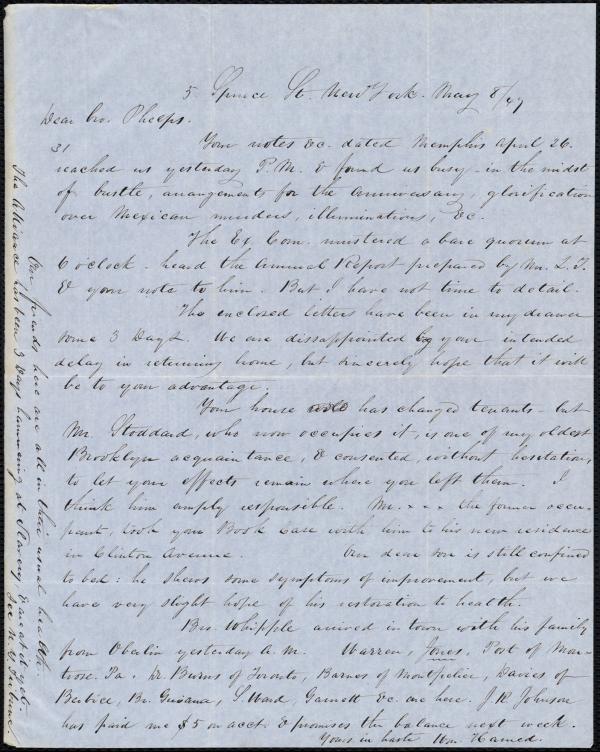 5 Spruce St. New York. May 8/47
Dear bro. Phelps.
31
Your notes &c. dated Memphis April 26.
reached us yesterday P.M. & found us busy - in the midst
of bustle, arrangements for the Anniversary, glorification
over Mexican murders, illuminations, &c.
The Ex. Com. mustered a bare quorum at
6 o'clock - heard the Annual Report prepared by Mr. L.T.
& your note to him. But I have not time to detail.
The enclosed letters have been in my drawer
some 3 Days. We are dissappointed by your intended
delay in returning home, but sincerely hope that it will
be to your advantage.
Your house has changed tenants - but
Mr. Stoddard, who now occupies it, is one of my oldest
Brooklyn acquaintance, & consented, without hesitation,
to let your effects remain where you left them. I
think him amply responsible. Mr. x x x the former occu-
pant, took your Book Case with him to his new residence
in Clinton Avenue. Our dear son is still confined
to bed: he shews some symptoms of improvement, but we
have very slight hope of his restoration to health.
Bro. Whipple arrived in town with his family
from Oberlin yesterday A.M. Warren, Jones, Post of Mon-
trose, Pa. Dr. Burns of Toronto, Barnes of Montpelier, Davies of
Berbice, Br. Guiana, S. Ward, Garnett &c. are here. J.R. Johnson
has paid me $5 on acct. & promises the balance next week.
Yours in haste Wm. Harned.
Our friends here are all in their usual health.
The Alliance has been 3 Days hammering at Slavery & are at it yet.
See N.Y. Tribune